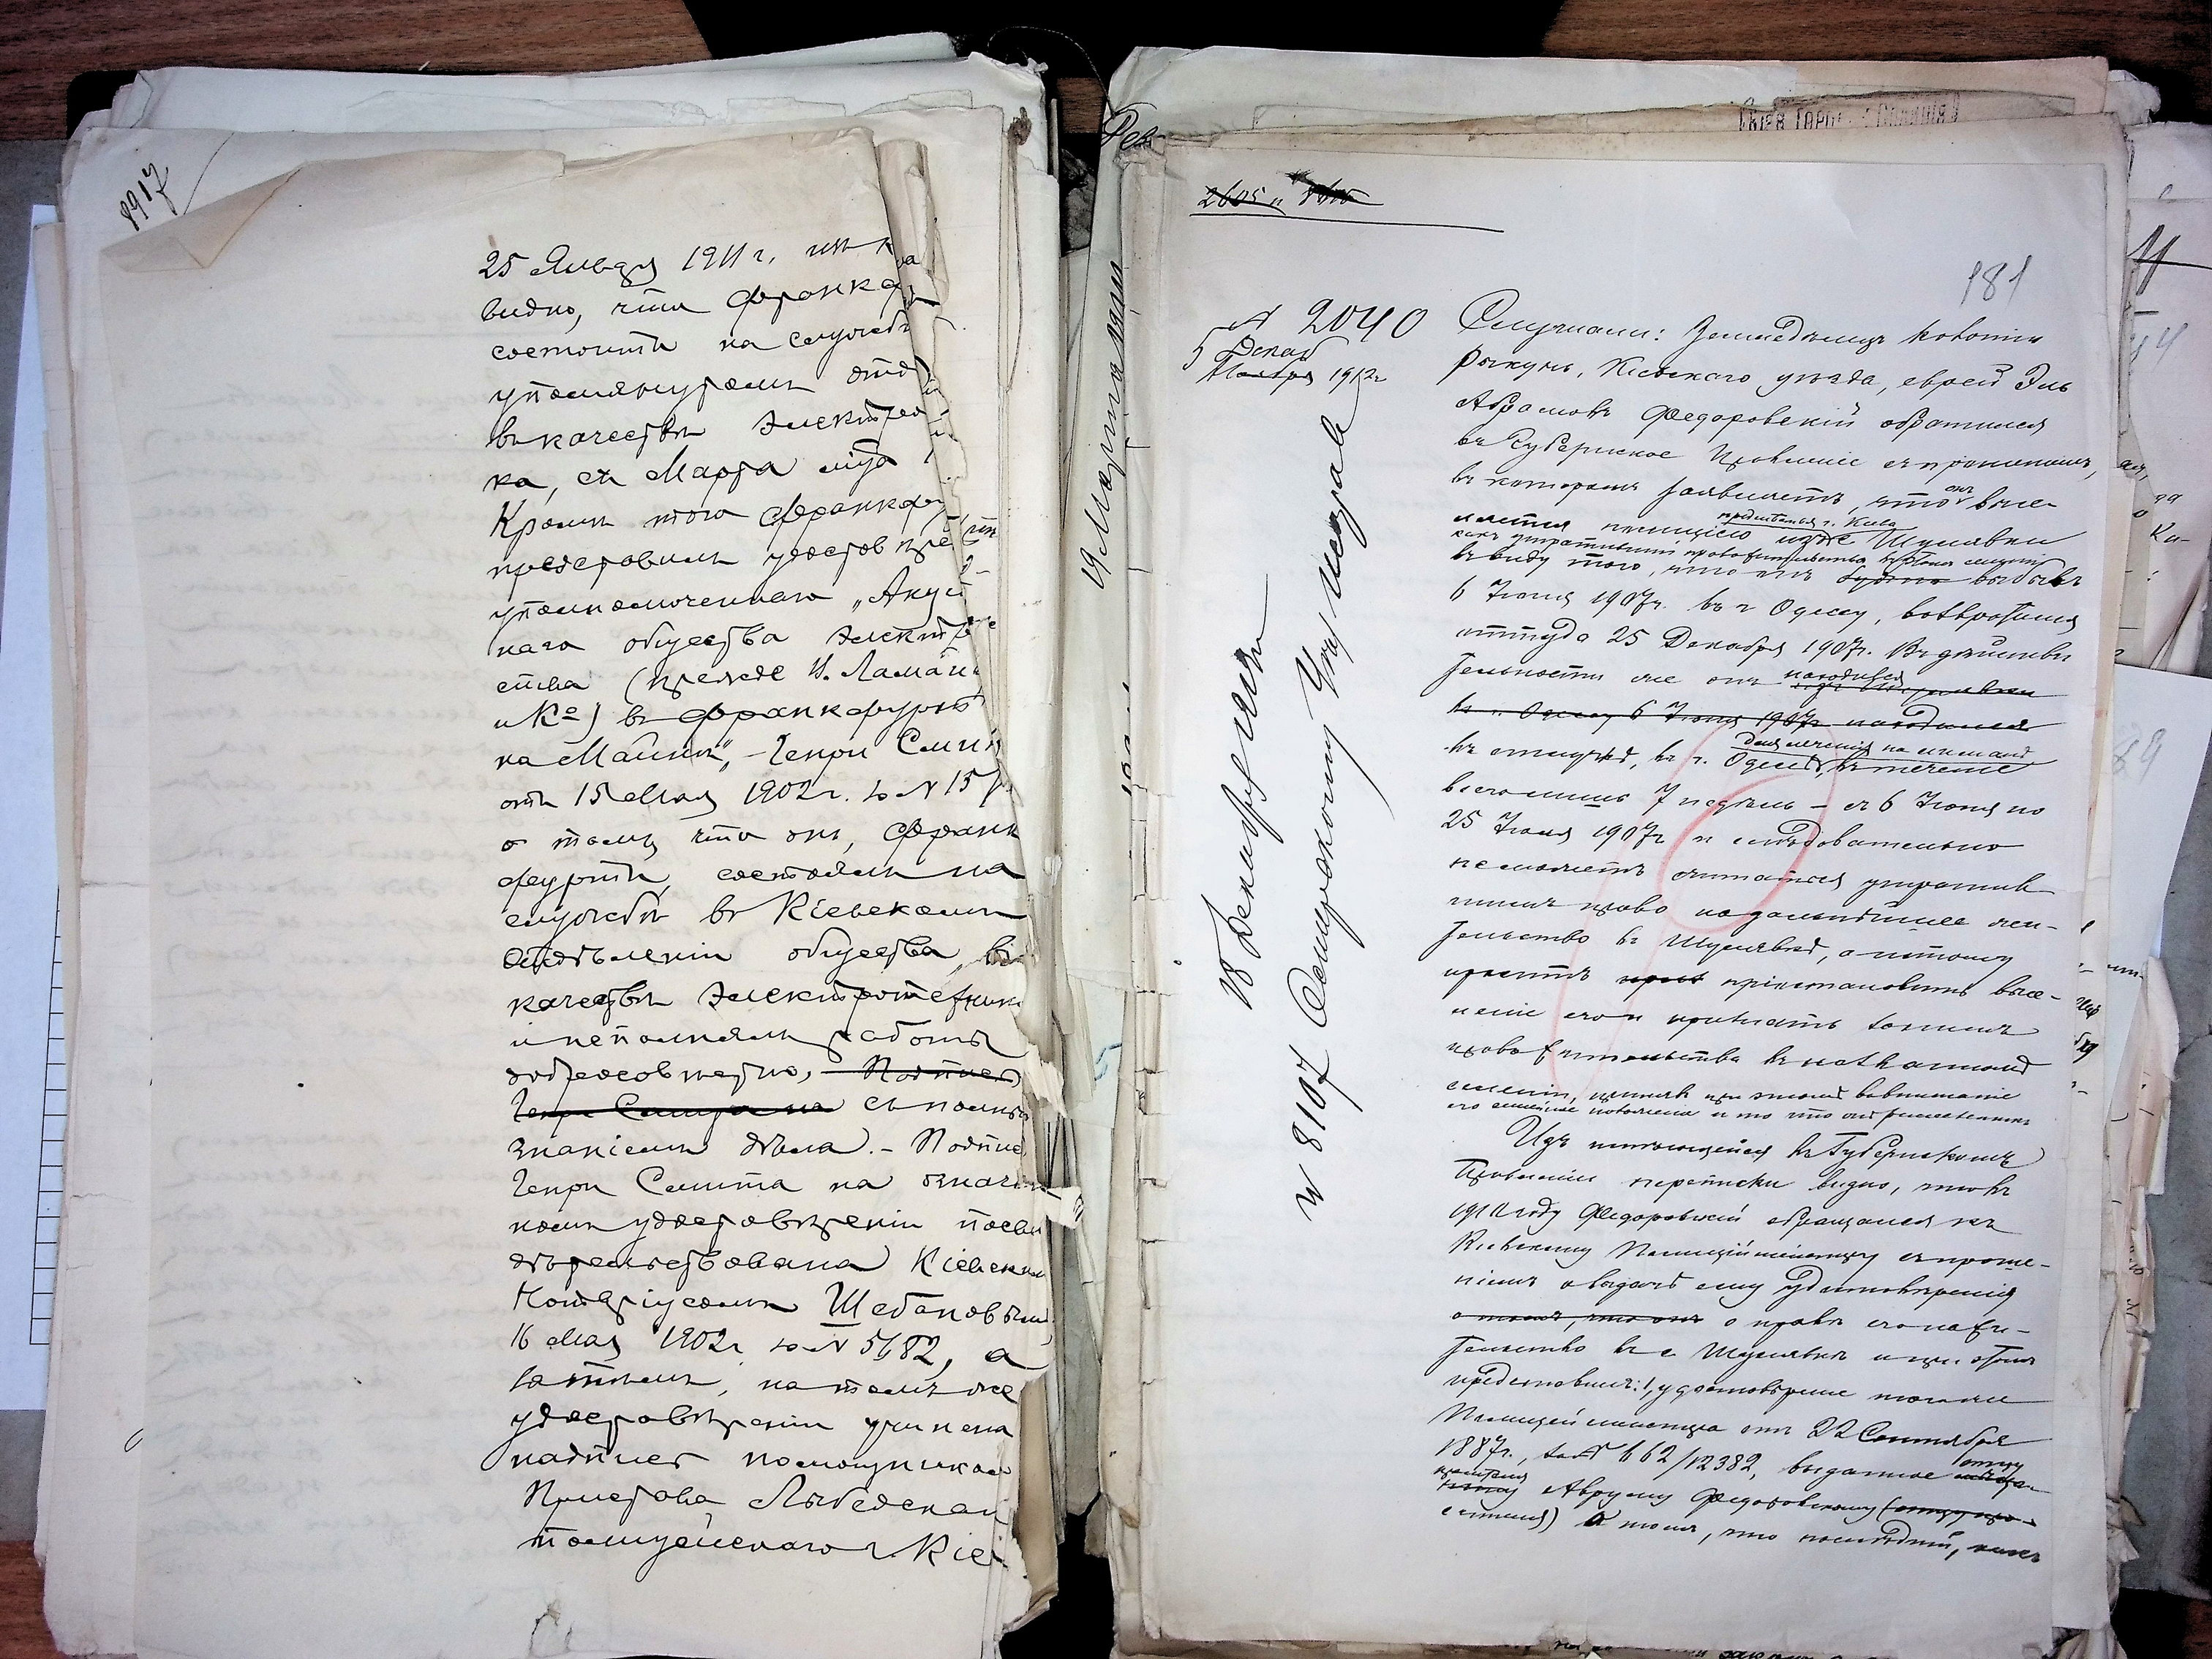 25 Января 1911 г.
видно, что Франкфу
состоитъ на службѣ
упомянутомъ отд
въ качествѣ Электро
ка, съ Марта
Кромѣ того Франкфу
представилъ удостовѣре
уполномоченнаго „Акці
наго общества Электр
ства (прежде В. Ламай
и Ко) въ Франкфуртѣ
на Майнѣ„ - Генри Смит
отъ 15 Мая 1902 г. за N 15
о томъ, что онъ, Франк
фуртъ, состоялъ на
службѣ въ Кіевскомъ
Отдѣленіи общества, въ
качествѣ Электротехника
и исполнялъ работы
добросовѣстно, Подпись
Генри Смита на съ полнымъ
знаніемъ дѣла. - Подпис
Генри Смита на означен
номъ удостовѣреніи посви
дѣтельствована Кіевски
Нотаріусомъ Шебановымъ
16 Мая 1902 г. за N 5682, а
затѣмъ, на томъ же
удостовѣреніи учинена
надпись помощникомъ
Пристава Лыбедскаго
полицейскаго г. Кіе
19 Мартъ
2605 и
181
N 2040
5 Декаб
Ноября 1912 г
N 8107
Слушали: Земледѣлецъ колоніи
Рыкунь, Кіевскаго уѣзда, еврей Эль
Абрамовъ Федоровскій обратился
въ Губернское Правленіе съ прошеніемъ,
въ которомъ заявляетъ, что онъ высе-
предмѣстья г. Кіева
ляется полиціею изъ Шулявки
какъ утратившій право жительства въ
въ виду того, что онъ будто выбывъ
6 Іюня 1907 г. въ г. Одессу, возвратился
оттуда 25 Декабря 1907 г. Въ дѣйстви
тельности же онъ находился
въ г. Одессу 6 Іюня 1907 г. находился
для леченія на лиманѣ
въ отлучкѣ, въ г. Одессѣ, въ теченіе
всего лишь 7 недѣль - съ 6 Іюня по
25 Іюля 1907 г. и слѣдовательно
не можетъ считаться утратив-
шимъ право на дальнѣйшее жи-
тельство въ Шулявкѣ, а потому
проситъ пріостановить высе-
леніе его и признать за нимъ
право жительства въ названной
селеніи, принявъ при этомъ во вниманіе
его семейное положеніе и то что онъ ремесленникъ
Изъ имѣющейся въ Губернскомъ
Правленіи переписки видно, что въ
1911 году Федоровскій обращался къ
Кіевскому Полиціймейстеру съ проше-
ніемъ о выдачѣ ему удостовѣренія
о томъ, что онъ о правѣ его на жи-
тельство въ с. Шулявкѣ и при этомъ
представилъ: 1, удостовѣреніе
Полиціймейстера отъ 22 Сентября
1887 г., за N 662/12382, выданное отцу
просителя Авруму Федоровскому
о томъ, что послѣдній,